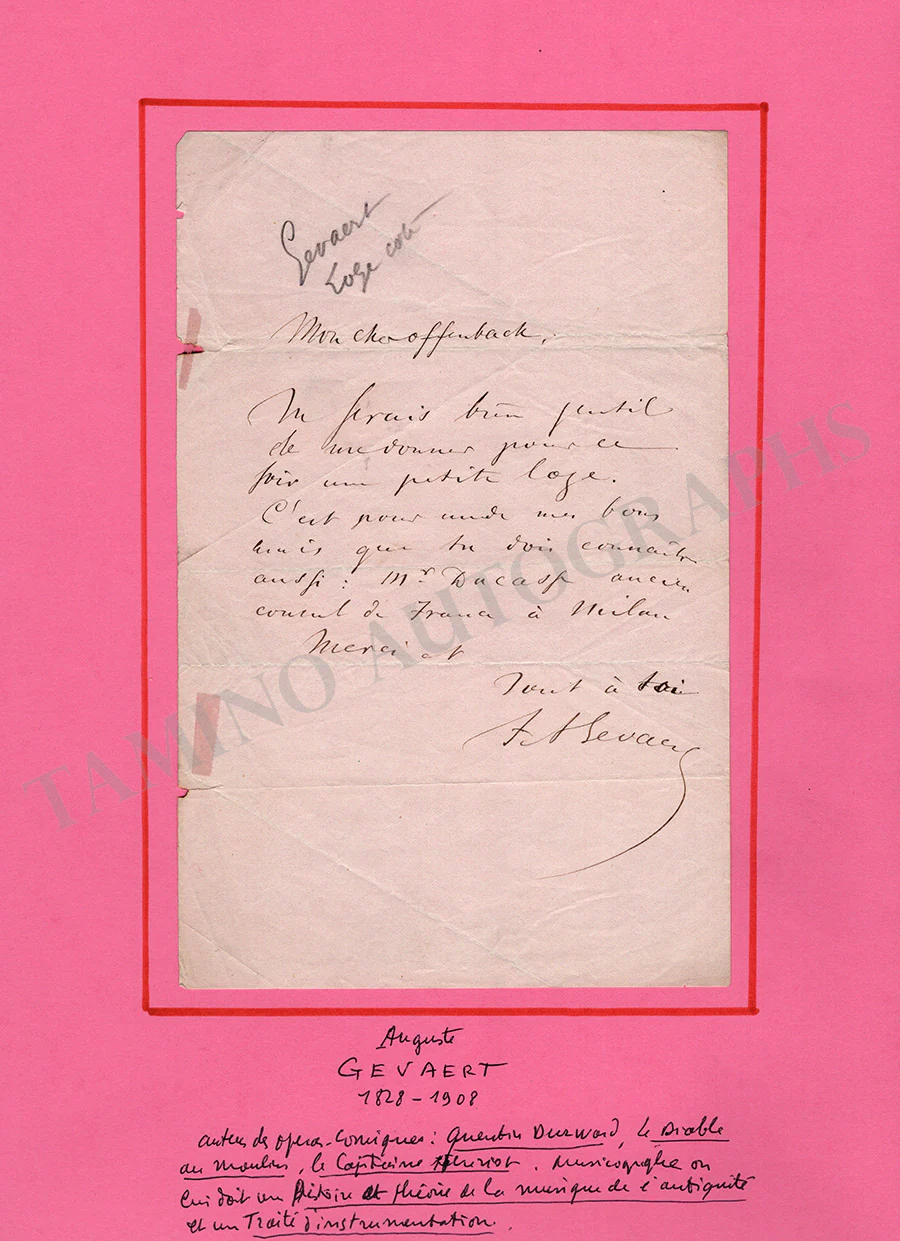 Gevaert
Loge coté
Mon cher Offenback,
Tu serais bien gentil
de me donner pour ce
soir une petite loge.
C'est pour un de mes bons
amis que tu dois connaître
aussi : Mr Ducasse ancien
consul de France à Milan
Merci et
Tout à toi
F A Gevaert
TAMINO AUTOGRAPHS
Auguste
GEVAERT
1828 - 1908
auteur de opéras-comiques : Quentin Durward, le Diable
au moulin, le Capitaine Henriot. Musicographe on
lui doit un Histoire et théorie de la musique de l'antiquité
et un Traité d'instrumentation.